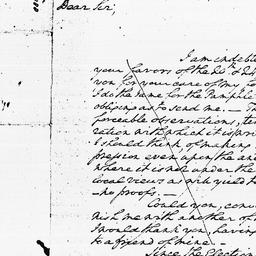 Dear Sir,
I am indebte
your favors of the 20th & 24
you for your care of my le
I do the same for the Pamphle
obliging as to send me. — Th
forceible observations, te
ration with which it is pro
I should think of making
pression even upon the an
where it is not under the
local views as will yield t
— no proofs. —
Could you, conve
nish me with another of t
I would thank you, having
to a friend of mine. —
Since the Election